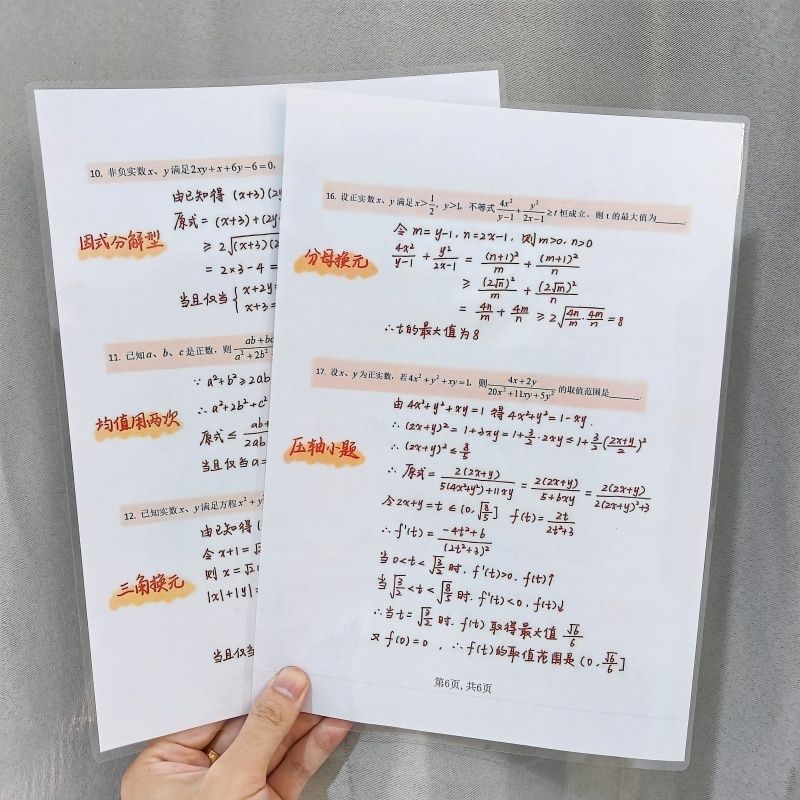 10. 非负实数 x、y 满足 2xy+x+6y-6=0,
由已知得 (x+3)(2y
原式 = (x+3)+(2y
因式分解型
≥ 2√(x+3)(2
= 2×3-4 =
当且仅当 { x+2y=
x+3=
11. 已知 a、b、c 是正数，则 (ab+bc)/(a²+2b²
∵ a²+b² ≥ 2ab
均值用两次
∴ a²+2b²+c²
原式 ≤ ab+/2ab
当且仅当 a=
12. 已知实数 x、y 满足方程 x²+y²
由已知得 (
令 x+1=√
三角换元
则 x=√2
|x|+|y|=
当且仅当
16. 设正实数 x、y 满足 x>1/2, y>1, 不等式 4x²/(y-1)+y²/(2x-1)≥t 恒成立，则 t 的最大值为______.
令 m=y-1, n=2x-1, 则 m>0, n>0
分母换元
4x²/(y-1) + y²/(2x-1) = (n+1)²/m + (m+1)²/n
≥ (2√n)²/m + (2√m)²/n
= 4n/m + 4m/n ≥ 2√(4n/m · 4m/n) = 8
∴ t的最大值为8
17. 设 x、y 为正实数，若 4x²+y²+xy=1, 则 (4x+2y)/(20x²+11xy+5y²) 的取值范围是______.
由 4x²+y²+xy=1 得 4x²+y²=1-xy.
∴ (2x+y)² = 1+3xy = 1+3/2·2xy ≤ 1+3/2((2x+y)/2)²
压轴小题
∴ (2x+y)² ≤ 8/5
∴ 原式 = 2(2x+y)/(5(4x²+y²)+11xy) = 2(2x+y)/(5+6xy) = 2(2x+y)/(2(2x+y)²+3)
令 2x+y=t ∈ (0, √(8/5)] f(t)= 2t/(2t²+3)
∴ f'(t) = (-4t²+6)/(2t²+3)²
当 0<t<√(3/2) 时, f'(t)>0, f(t)↑
当 √(3/2)<t<√(8/5) 时. f'(t)<0, f(t)↓
∴ 当 t=√(3/2) 时. f(t) 取得最大值 √6/6
又 f(0)=0 , ∴ f(t)的取值范围是 (0, √6/6]
第6页, 共6页